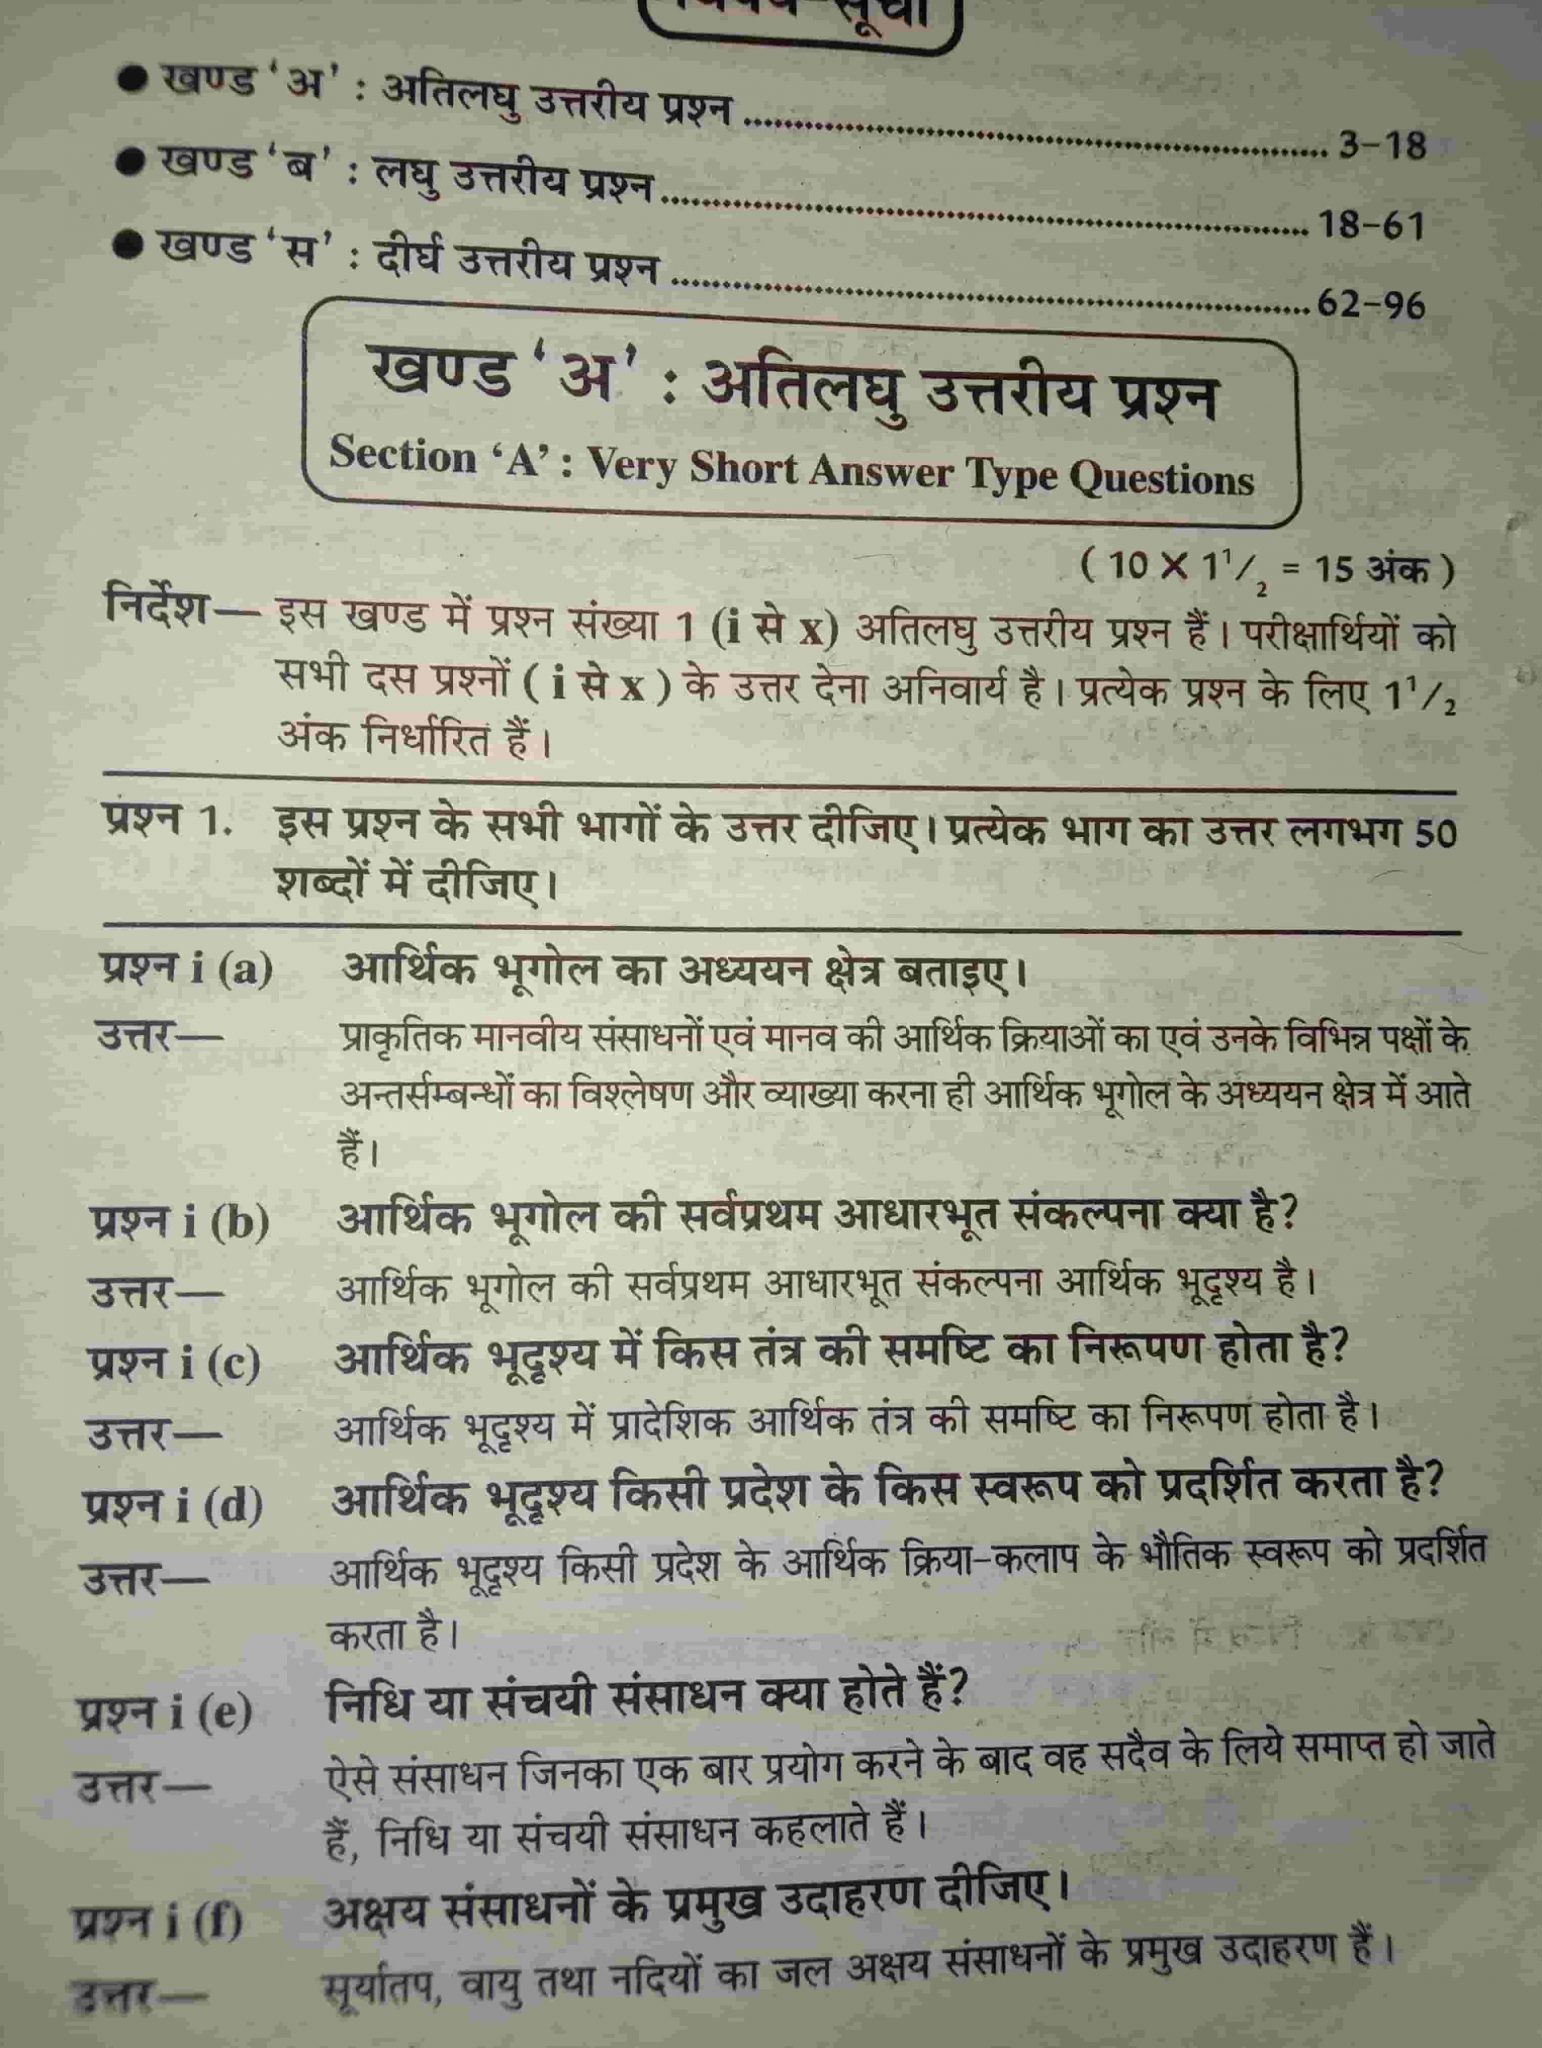 ● खण्ड ‘अ’ : अतिलघु उत्तरीय प्रश्न ........................................ 3-18
● खण्ड ‘ब’ : लघु उत्तरीय प्रश्न ........................................ 18-61
● खण्ड ‘स’ : दीर्घ उत्तरीय प्रश्न ........................................ 62-96
खण्ड ‘अ’ : अतिलघु उत्तरीय प्रश्न
Section ‘A’ : Very Short Answer Type Questions
( 10 × 1¹/₂ = 15 अंक )
निर्देश— इस खण्ड में प्रश्न संख्या 1 (i से x) अतिलघु उत्तरीय प्रश्न हैं। परीक्षार्थियों को
सभी दस प्रश्नों ( i से x ) के उत्तर देना अनिवार्य है। प्रत्येक प्रश्न के लिए 1¹/₂
अंक निर्धारित हैं।
प्रश्न 1. इस प्रश्न के सभी भागों के उत्तर दीजिए। प्रत्येक भाग का उत्तर लगभग 50
शब्दों में दीजिए।
प्रश्न i (a) आर्थिक भूगोल का अध्ययन क्षेत्र बताइए।
उत्तर— प्राकृतिक मानवीय संसाधनों एवं मानव की आर्थिक क्रियाओं का एवं उनके विभिन्न पक्षों के
अन्तर्सम्बन्धों का विश्लेषण और व्याख्या करना ही आर्थिक भूगोल के अध्ययन क्षेत्र में आते
हैं।
प्रश्न i (b) आर्थिक भूगोल की सर्वप्रथम आधारभूत संकल्पना क्या है?
उत्तर— आर्थिक भूगोल की सर्वप्रथम आधारभूत संकल्पना आर्थिक भूदृश्य है।
प्रश्न i (c) आर्थिक भूदृश्य में किस तंत्र की समष्टि का निरूपण होता है?
उत्तर— आर्थिक भूदृश्य में प्रादेशिक आर्थिक तंत्र की समष्टि का निरूपण होता है।
प्रश्न i (d) आर्थिक भूदृश्य किसी प्रदेश के किस स्वरूप को प्रदर्शित करता है?
उत्तर— आर्थिक भूदृश्य किसी प्रदेश के आर्थिक क्रिया-कलाप के भौतिक स्वरूप को प्रदर्शित
करता है।
प्रश्न i (e) निधि या संचयी संसाधन क्या होते हैं?
उत्तर— ऐसे संसाधन जिनका एक बार प्रयोग करने के बाद वह सदैव के लिये समाप्त हो जाते
हैं, निधि या संचयी संसाधन कहलाते हैं।
प्रश्न i (f) अक्षय संसाधनों के प्रमुख उदाहरण दीजिए।
उत्तर— सूर्यातप, वायु तथा नदियों का जल अक्षय संसाधनों के प्रमुख उदाहरण हैं।